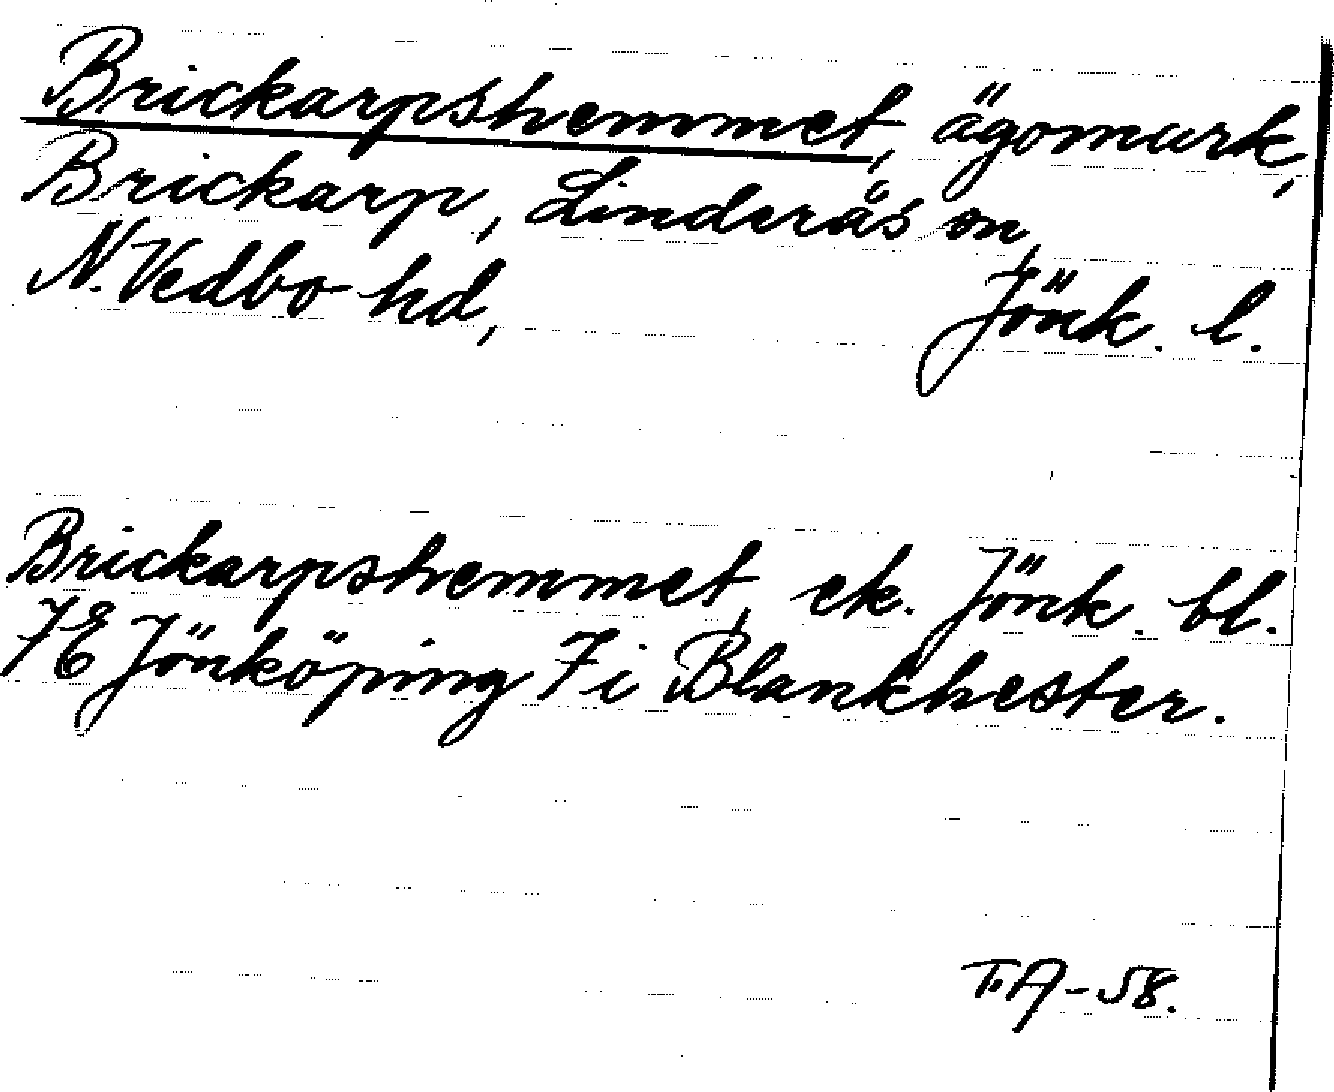 Brickarpshemmet, ägomark,
Brickarp, Linderås sn,
N. Vedbo hd,
Jönk. l.
Brickarpshemmet, ek. Jönk. bl.
7E Jönköping 7i Blankhester.
T.A-58.